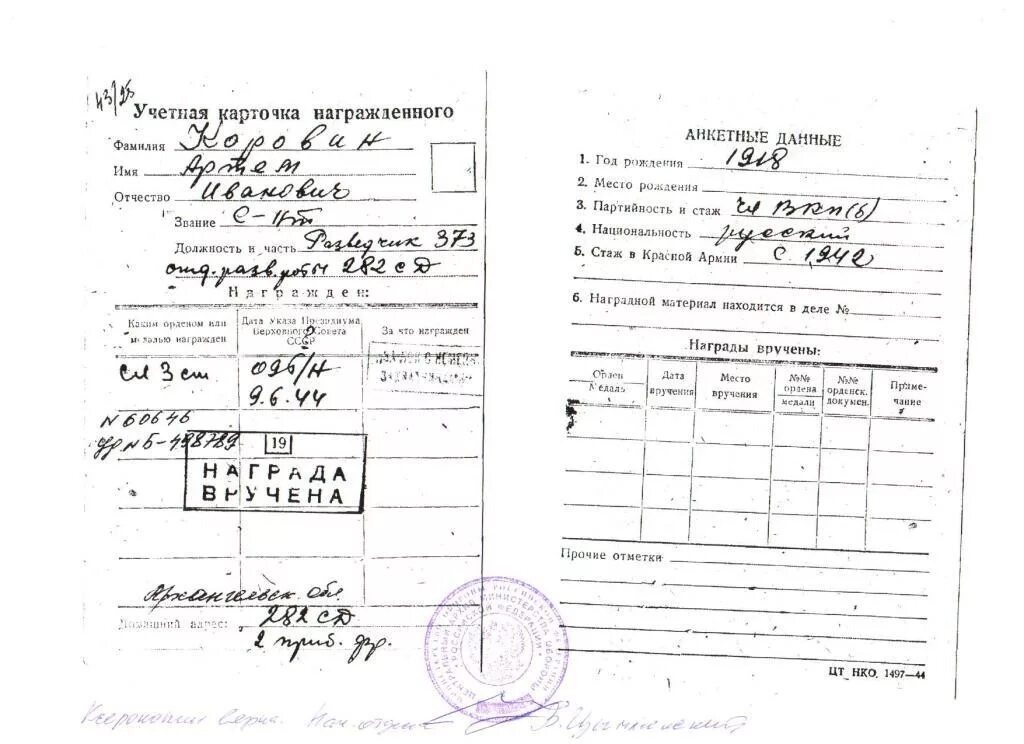 43/23
Учетная карточка награжденного
Фамилия Коровин
Имя Артем
Отчество Иванович
Звание С-нт
Должность и часть Разведчик 373
отд. разв. роты 282 сд
Награжден:
Каким орденом или медалью награжден
Дата Указа Президиума Верховного Совета СССР
За что награжден
сл 3 ст.
096/н
9.6.44
N 60646
N Б-498789
19
НАГРАДА
ВРУЧЕНА
Архангельск. обл
Домашний адрес: 282 сд
2 приб. фр.
АНКЕТНЫЕ ДАННЫЕ
1. Год рождения 1918
2. Место рождения
3. Партийность и стаж чл ВКП(б)
4. Национальность русский
5. Стаж в Красной Армии с 1942
6. Наградной материал находится в деле №
Награды вручены:
Орден
Медаль
Дата вручения
Место вручения
№№ ордена медали
№№ орденск. докумен.
Примечание
Прочие отметки
ЦТ НКО. 1497—44
Ксерокопия верна. Нач. отдела